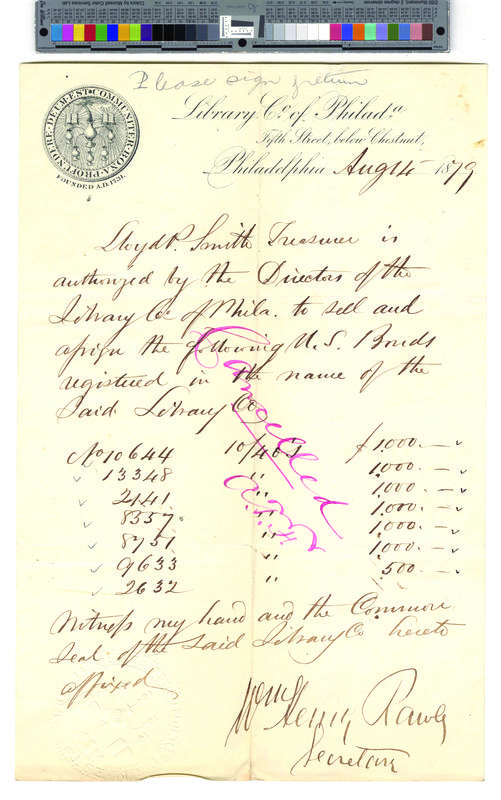 Please sign & return
COMMUNITER BONA PROFUNDERE DEUM EST
FOUNDED A.D. 1731.
Library Co. of Philada.
Fifth Street, below Chestnut,
Philadelphia Aug 14 1879
Lloyd P. Smith Treasurer is
authorized by the Directors of the
Library Co. of Phila. to sell and
assign the following U.S. Bonds
registered in the name of the
Said Library Co.
No 10644 10/40s $1000.—
13348 " 1000.—
2141 " 1000.—
8357 " 1000.—
8751 " 1000.—
9633 " 1000.—
2632 " 500.—
Cancelled
Witness my hand and the Common
Seal of the Said Library Co hereto
affixed
Wm Henry Rawle
Secretary